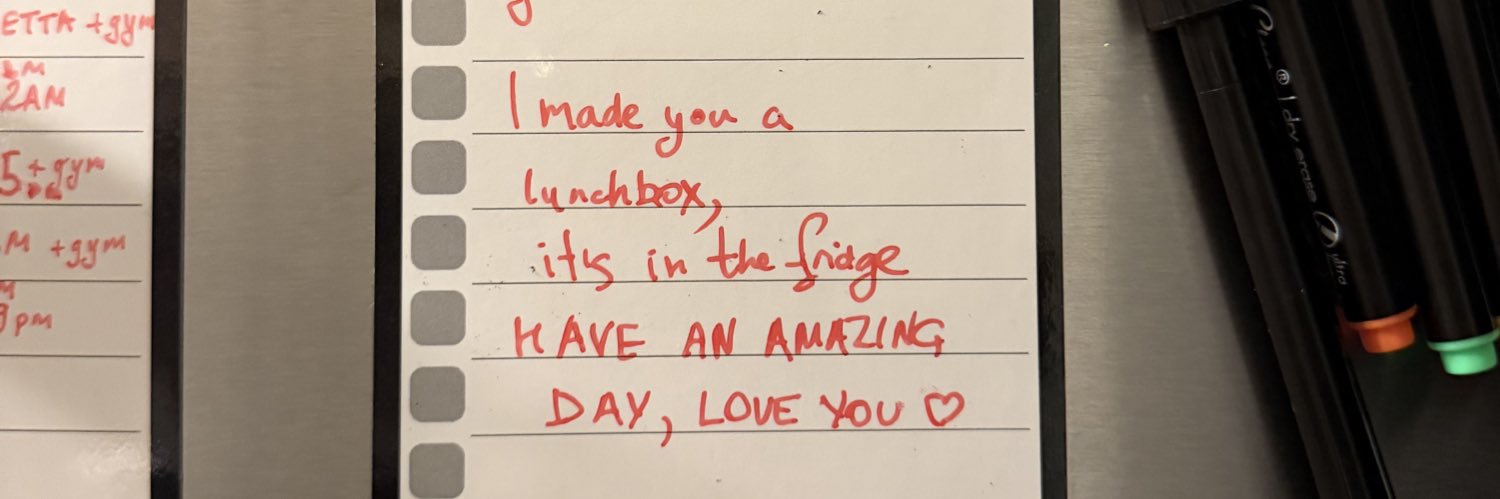 ETTA +gym
2AM
5 +gym
M +gym
9pm
I made you a
lunchbox,
it's in the fridge
HAVE AN AMAZING
DAY, LOVE YOU ♡
® | dry erase
ultra